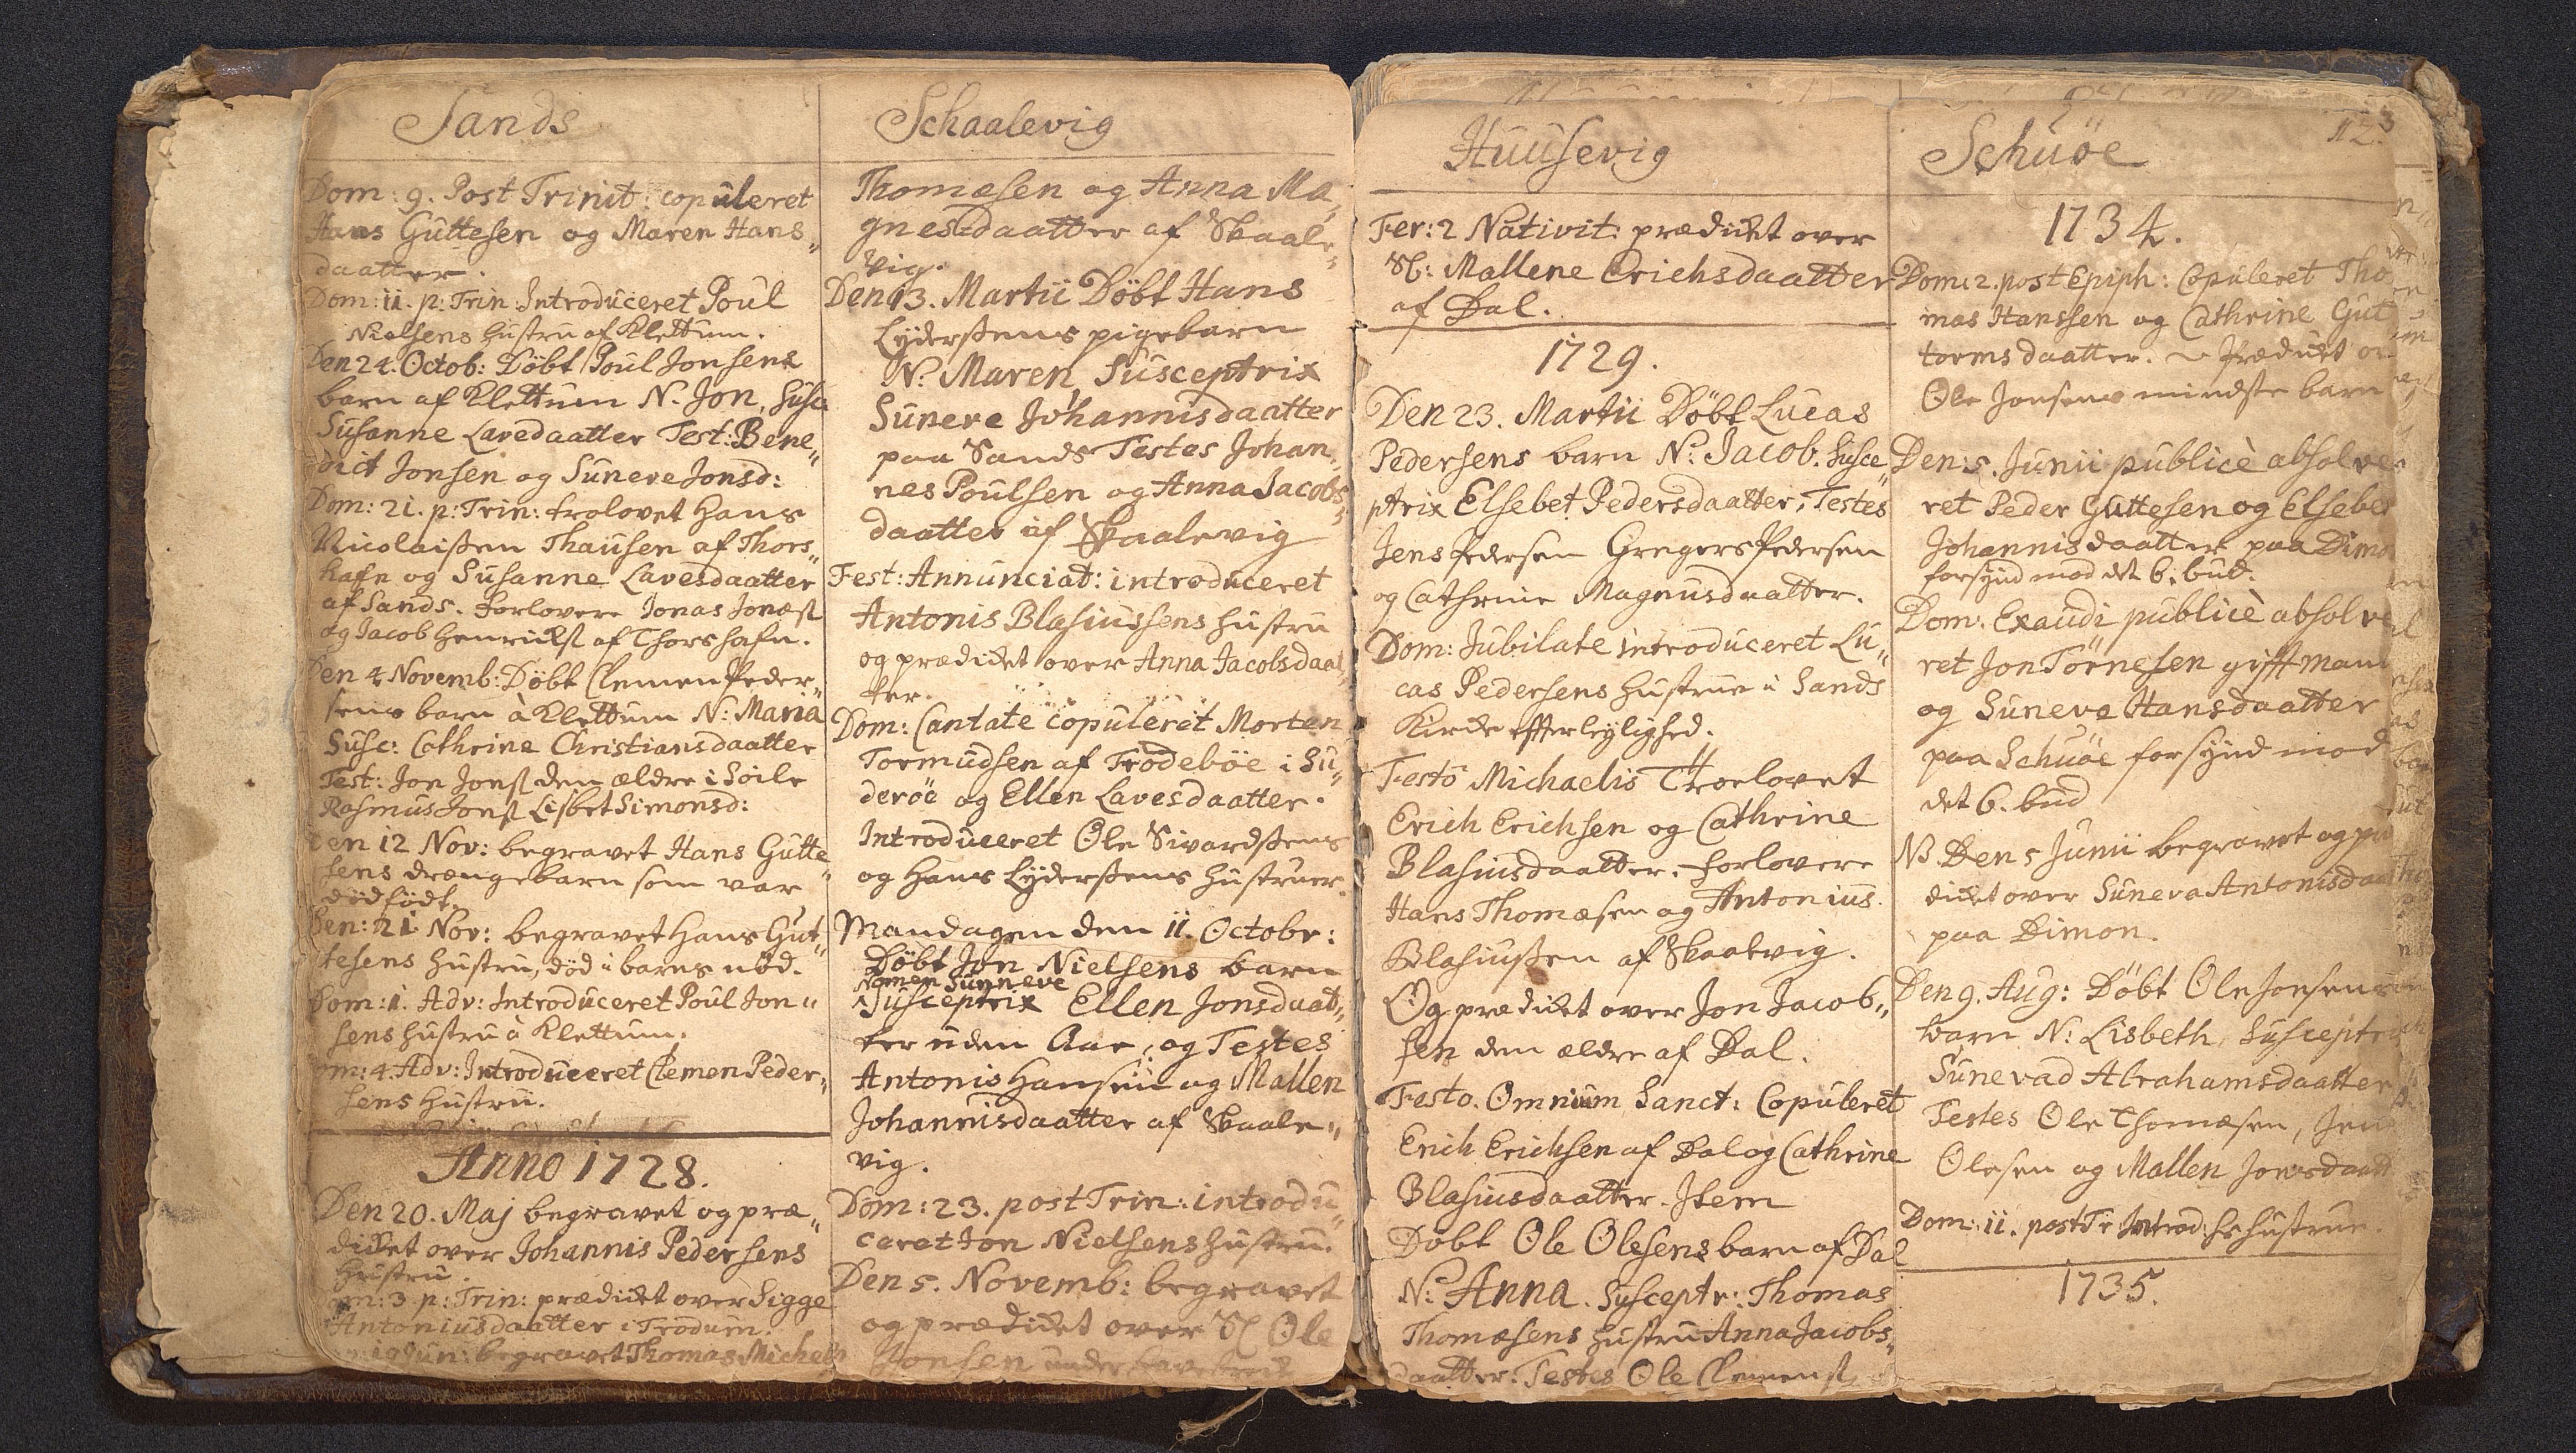 Sands
Dom: 9. Post Trinit: copuleret
Hans Guttesen og Maren Hans„
daatter.
Dom: 11. p: Trin: Introduceret Poul
Nielsens hustru af Klettum.
Den 24. Octob: Döbt Poul Jonsens
barn af Klettum N. Jon, Susc:
Susanne Lavedaatter Test: Bene„
dict Jonsen og Suneve Jonsd:
Dom: 21. p: Trin: trolovet Hans
Nicolaissen Thausen af Thors„
hafn og Susanne Lavesdaatter
af Sands. Forlovere Jonas Jonæs:
og Jacob Henricks: af Thorshafn.
Den 4 Novemb: Döbt Clemen Peder„
sens barn à Klettum N: Maria
Susc: Cathrine Christiansdaatter
Test: Jon Jons: den ældre i Soile
Rasmus Jons: Lisbet Simonsd:
Den 12 Nov: begravet Hans Gutte„
sens drængebarn som var
dödfödt.
Den: 21 Nov: begravet Hans Gut„
tesens hustru, död i barns nöd.
Dom: 1. Adv: Introduceret Poul Jon„
sens hustru à Klettum.
Dom: 4. Adv: Introduceret Clemen Peder„
sens hustru.
Anno 1728.
Den 20. Maj begravet og præ„
dicket over Johannis Pedersens
hustru.
Dom: 3 p: Trin: prædicket over Sigge
Antoniusdaatter i Trödum.
19 Jun: begravet Thomas Michels
Schaalevig
Thomæsen og Anna Ma„
gnesdaatter af Skaale„
vig.
Den 13. Martii Döbt Hans
Lyderssens pigebarn
N. Maren, Susceptrix
Suneve Johannisdaatter
paa Sands Testes Johan„
nes Poulsen og Anna Jacobs„
daatter af Skaalevig
Fest: Annunciat: introduceret
Antonis Blasiussens hustru
og prædicket over Anna Jacobsdaat„
ter.
Dom: Cantate copuleret Morten
Tormudsen af Frodeböe i Su„
deröe og Ellen Lavesdaatter.
Introduceret Ole Sivardssens
og Hans Lyderssens hustruer.
Mandagen den 11. Octobr:
Döbt Jon Nielsens barn
Nomen Sunneve
Susceptrix Ellen Jonsdaat„
ter uden Aae, og Testes
Antonis Hansen og Mallen
Johannisdaatter af Skaale„
vig.
Dom: 23. post Trin: introdu„
ceret Jon Nielsens hustru.
Den 5. Novemb: begravet
og prædicket over Sl Ole
Jonsen
Huusevig
Fer: 2 Nativit: prædicket over
Sl: Mallene Erichsdaatter
af Dal.
1729.
Den 23. Martii Döbt Lucas
Pedersens barn N: Jacob. Susce„
ptrix Elsebet Pedersdaatter; Testes
Jens Pedersen Gregers Pedersen
og Cathrine Magnusdaatter.
Dom: Jubilate introduceret Lu„
cas Pedersens hustrue i Sands
Kirke efter leylighed.
Festo Michaelis Troelovet
Erich Erichsen og Cathrine
Blasiusdaatter. Forlovere
Hans Thomæsen og Antonius
Blasiussen af Skaalvig.
Og prædicket over Jon Jacob„
sen den ældre af Dal.
Festo. Omnium Sanct: Copuleret
Erich Erichsen af Dal og Cathrine
Blasiusdaatter. Item
Döbt Ole Olesens barn af Dal
N: Anna. Susceptr: Thomas
Thomæsens hustru Anna Jacobs„
daatter. Testes Ole Clemens:
123
Schuöe
1734.
Dom: 2. post Epiph: Copuleret Tho
mas Hanssen og Cathrine Gut
tormsdaatter. Prædicket ov
Ole Jonsens mindste barn
Den: 5. Junii publicè absolve„
ret Peder Guttesen og Elsebet
Johannisdaatter paa Dimo
forsynd mod det 6. bud.
Dom. Exaudi publicè absolve
ret Jon Törnesen gifft mand
og Suneva Hansdaatter
paa Schuöe forsynd mod
det 6. bud
NB Den 5 Junii begravet og præ
dicket over Suneva Antonisdaat
paa Dimon.
Den 9. Aug: Döbt Ole Jonsens
barn N: Lisbeth, Susceptrix
Sunevad Abrahamsdaatter
Testes Ole Thomæsen, Jens
Olesen og Mallen Jonsdaatt
Dom: 11. post Tr Introd: hs hustrue.
1735.